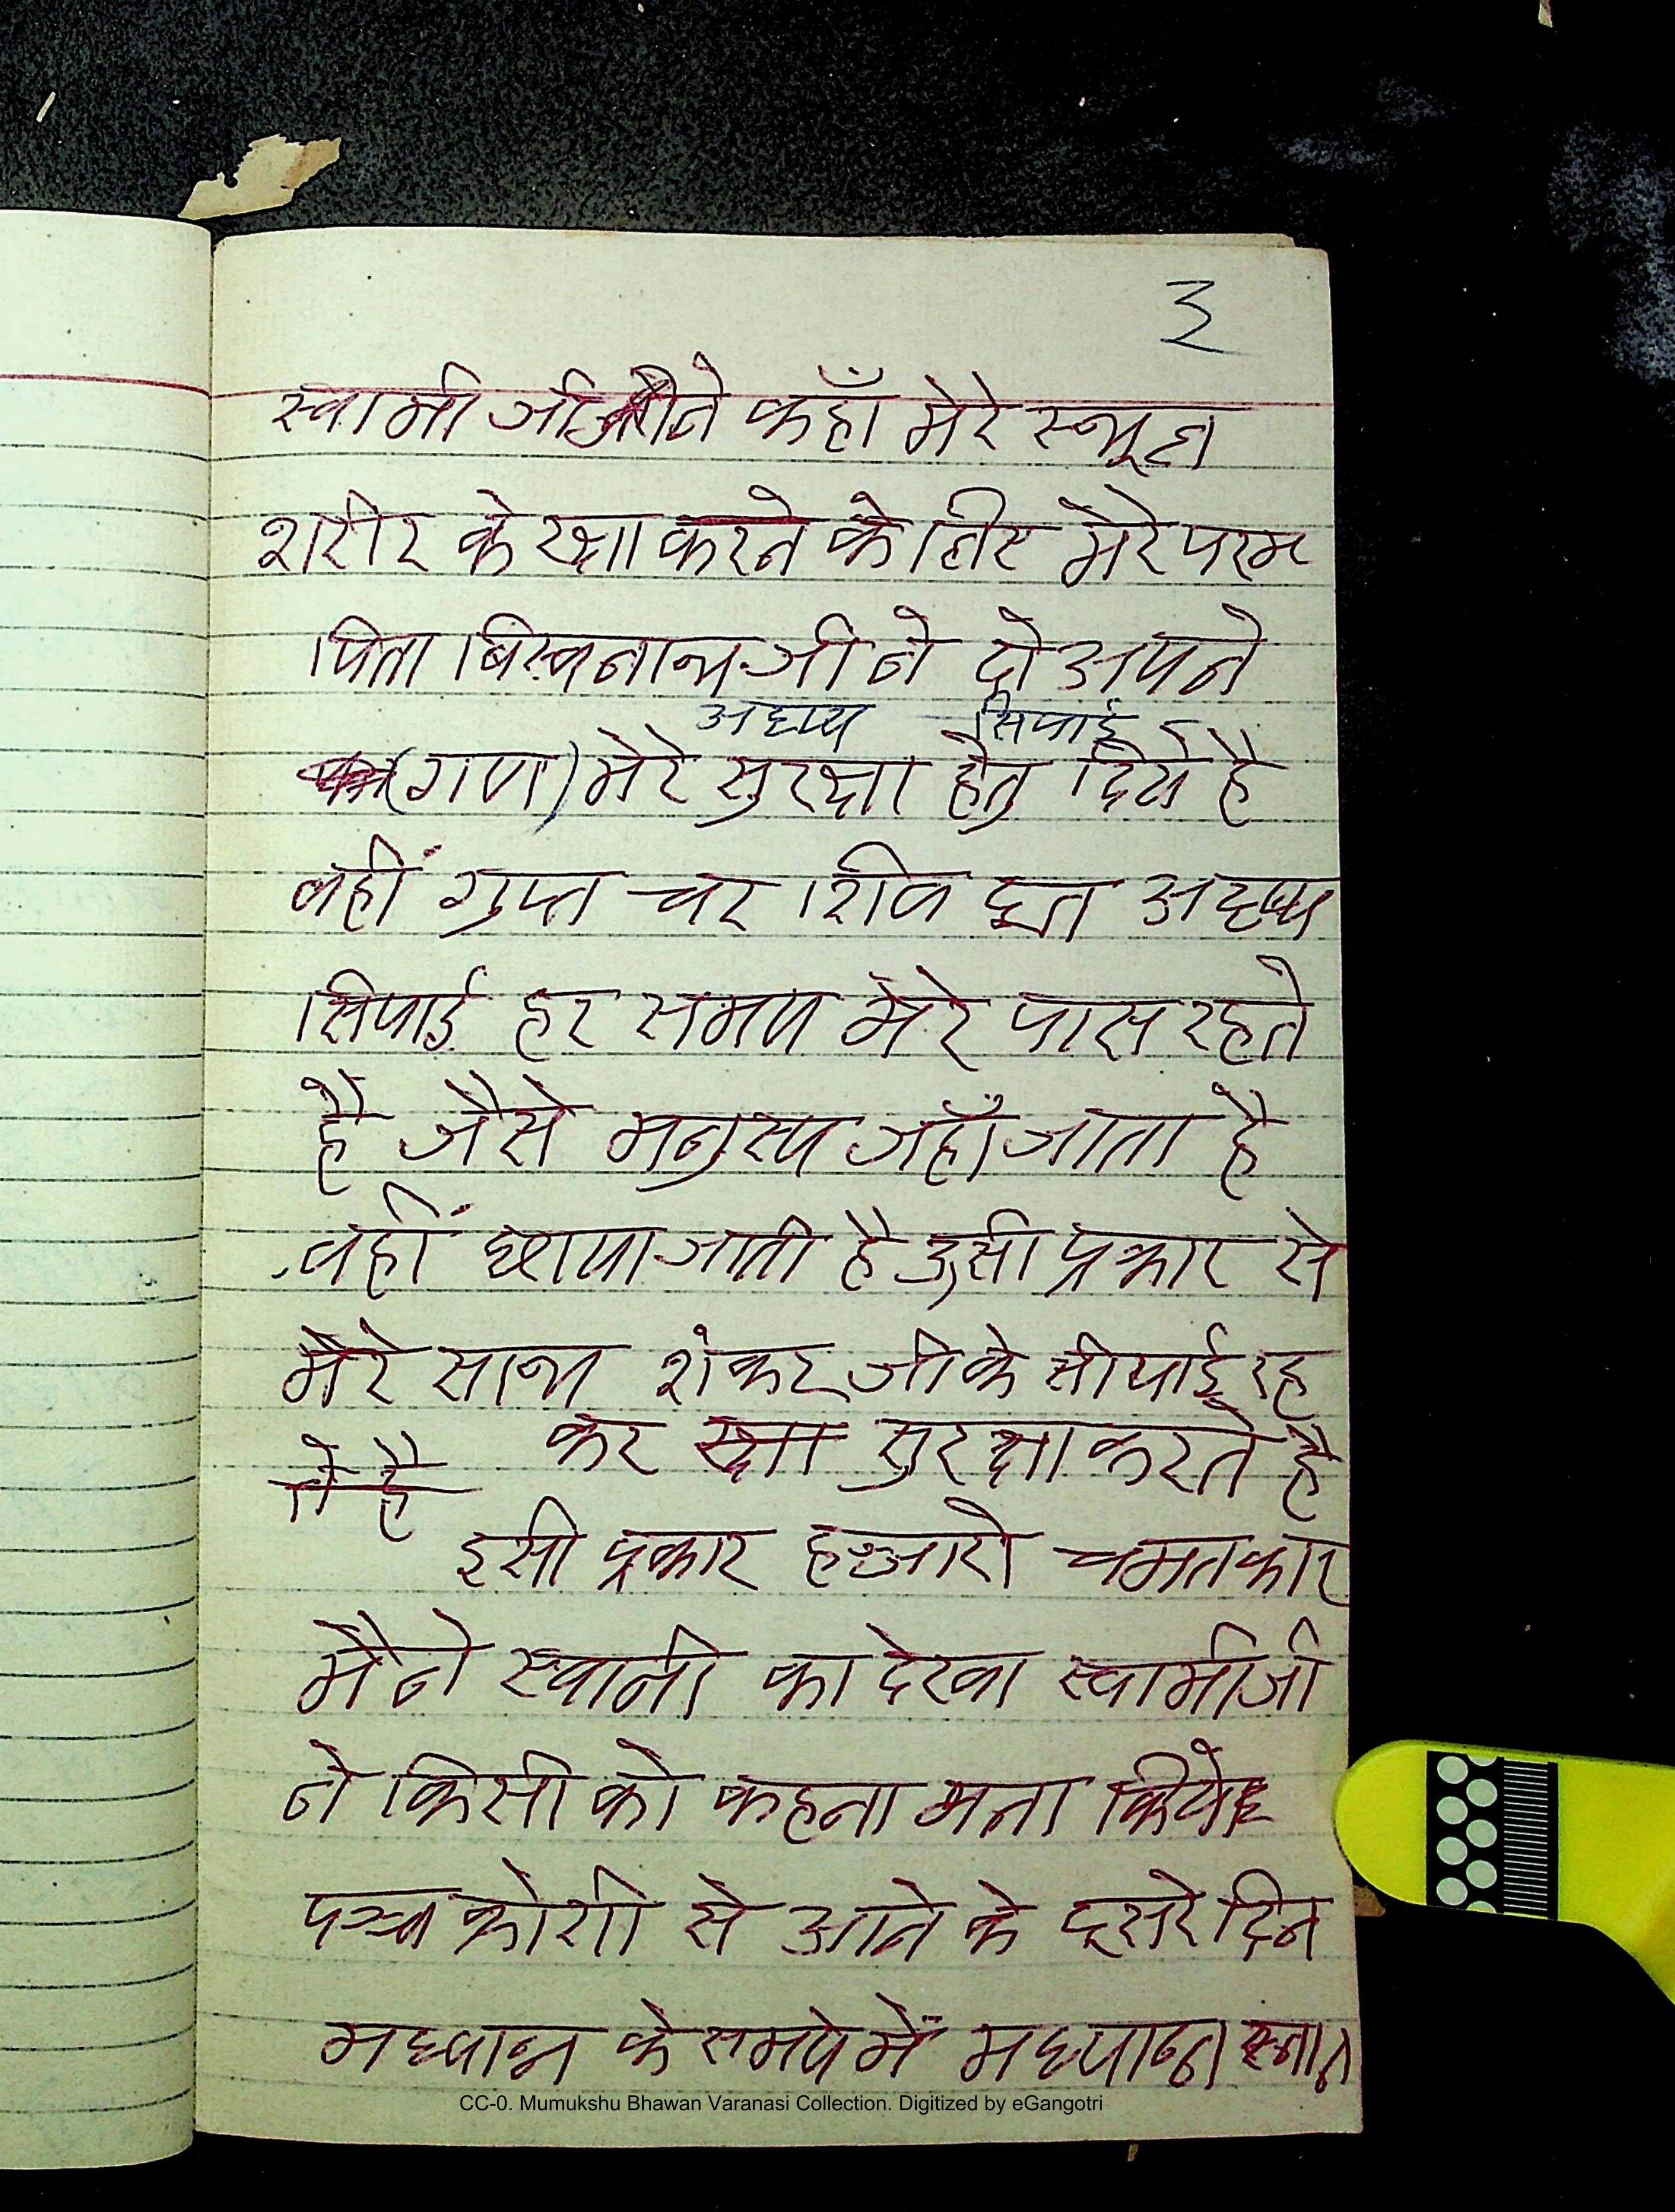 ३
स्वामी जी ने कहाँ मेरे स्थूल
शरीर के रक्षा करने के लिए मेरे परम
पिता बिस्वनाथ जी ने दो अपने
अदृष्य सिपाई
(गण) मेरे सुरक्षा हेतु दिये है
वहीं गुप्त चर शिव दूत अदृष्य
सिपाई हर समय मेरे पास रहते
है जैसे मनुस्य जहाँ जाता है
वहीं छाया जाती है उसी प्रकार से
मेरे साथ शंकर जी के सीपाई रह
कर रक्षा सुरक्षा करते है
ते है
इसी प्रकार हज्जारो चमतकार
मैने स्वामी का देखा स्वामी जी
ने किसी को कहना मना किये
पञ्च क्रोशी से आने के दूसरे दिन
मध्यान्न के समय में मध्यान्न स्नान
CC-0. Mumukshu Bhawan Varanasi Collection. Digitized by eGangotri